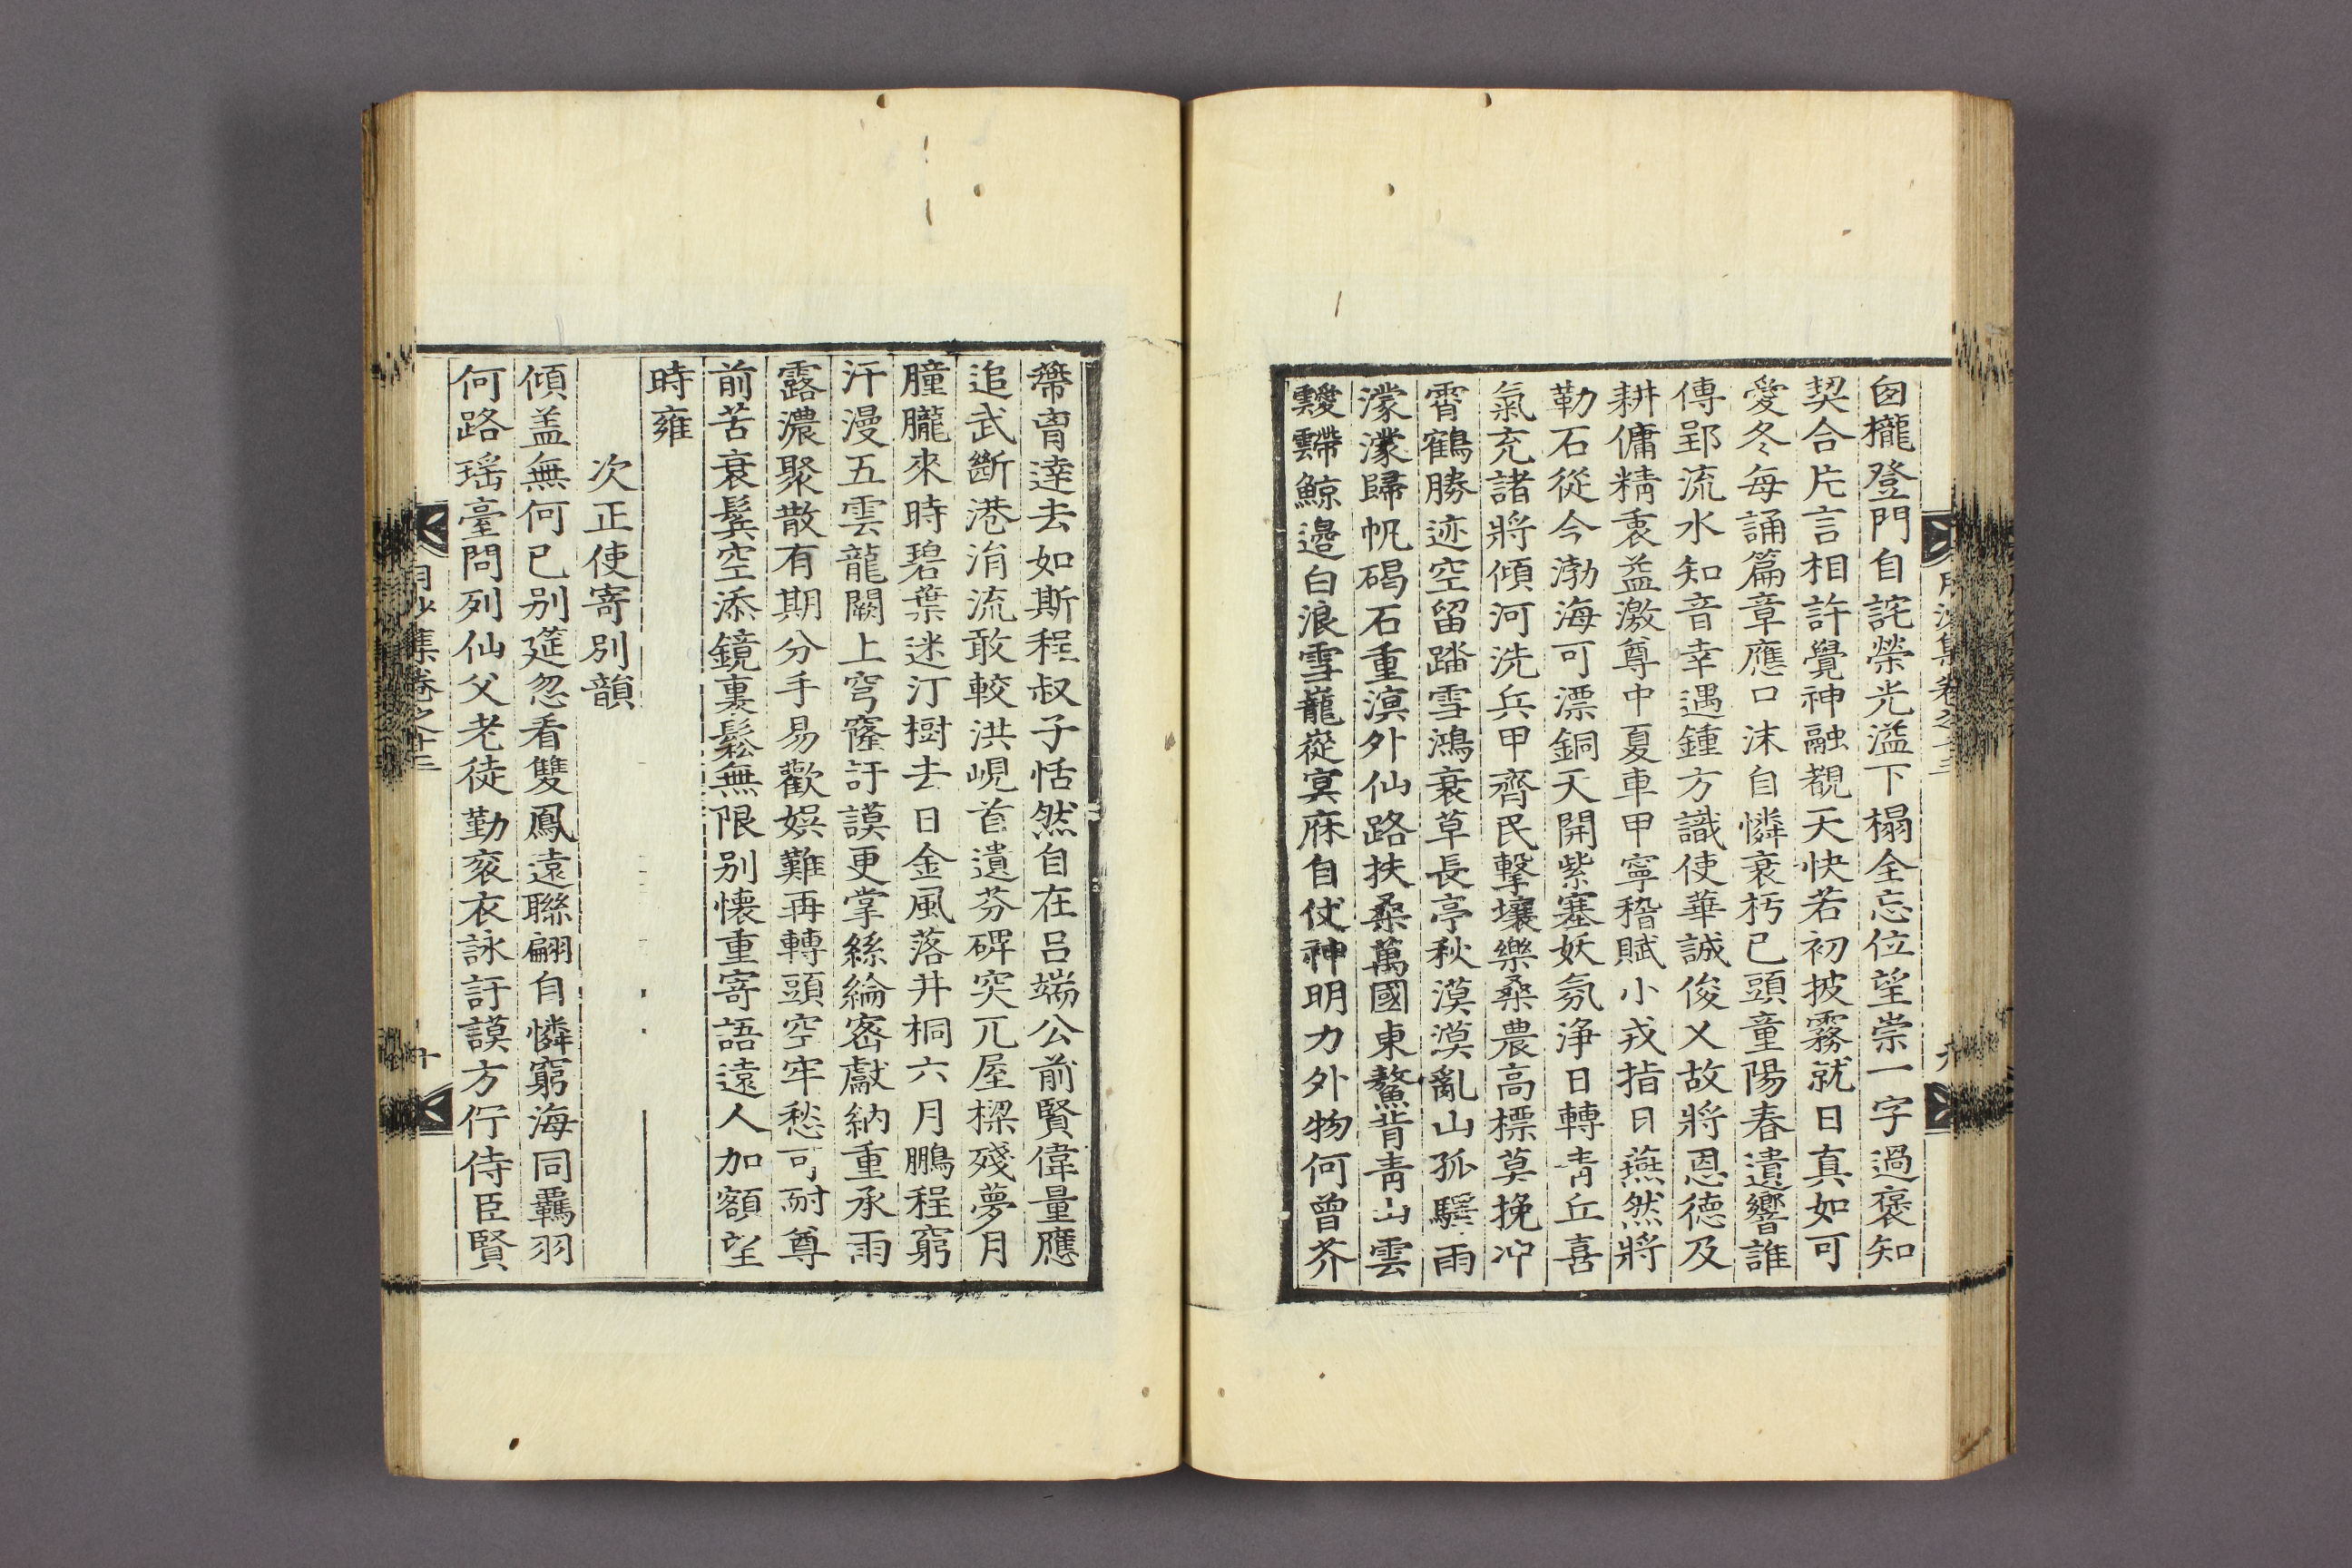 月沙集卷之十三
九
囱櫳登門自詫榮光溢下榻全忘位望崇一字過褒知
契合片言相許覺神融覩天快若初披霧就日真如可
愛冬每誦篇章應口沫自憐衰朽已頭童陽春遺響誰
傳郢流水知音幸遇鍾方識使華誠俊乂故將恩德及
耕傭精衷益激尊中夏車甲寧稽賦小戎指日燕然將
勒石從今渤海可漂銅天開紫塞妖氛淨日轉靑丘喜
氣充諸將傾河洗兵甲齊民擊壤樂桑農高標莫挽冲
霄鶴勝迹空留踏雪鴻衰草長亭秋漠漠亂山孤驛雨
濛濛歸帆碣石重溟外仙路扶桑萬國東鰲背靑山雲
靉霴鯨邊白浪雪巃嵸冥庥自仗神明力外物何曾芥
帶胷逹去如斯程叔子恬然自在呂端公前賢偉量應
追武斷港涓流敢較洪峴首遺芬碑突兀屋樑殘夢月
朣朧來時碧葉迷汀樹去日金風落井桐六月鵬程窮
汗漫五雲龍闕上穹窿訏謨更掌絲綸密獻納重承雨
露濃聚散有期分手易歡娛難再轉頭空牢愁可耐尊
前苦衰鬂空添鏡裏鬆無限別懷重寄語遠人加額望
時雍
次正使寄別韻
傾盖無何已別筵忽看雙鳳遠聯翩自憐窮海同羈羽
何路瑤臺問列仙父老徒勤衮衣詠訏謨方佇侍臣賢
月沙集卷之十三
十